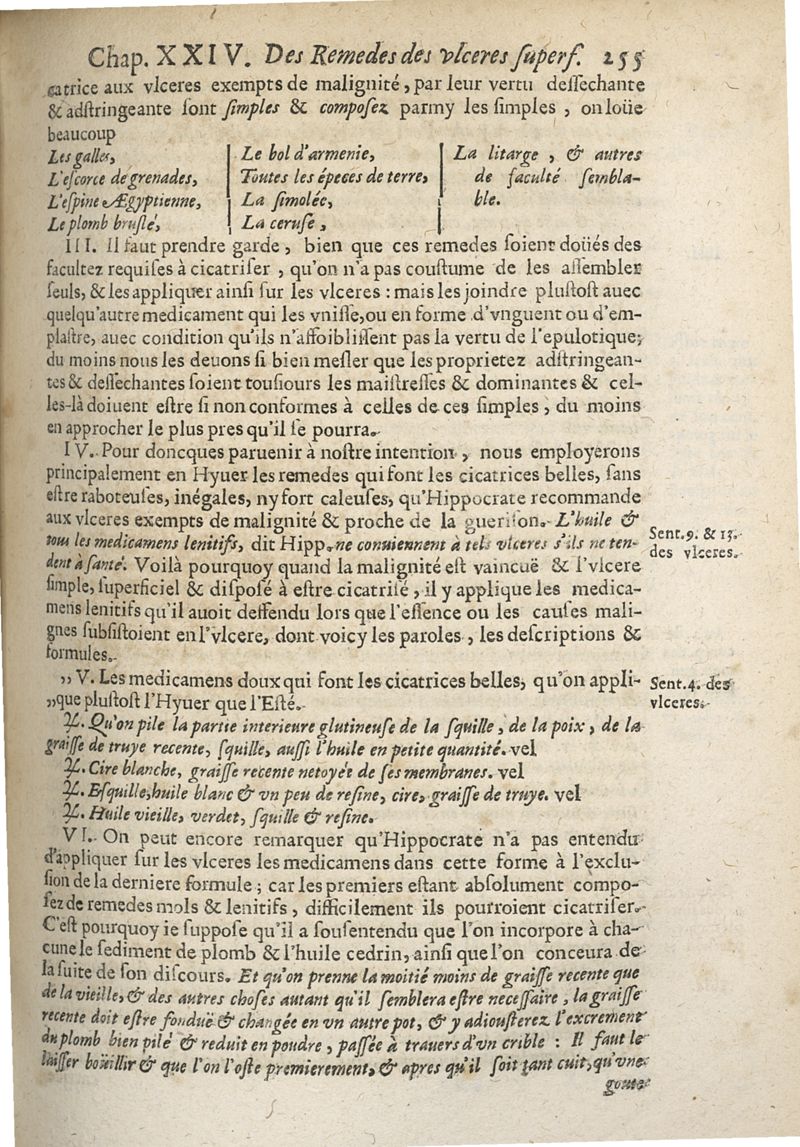 Chap. XXIV. Des Remedes des vlceres ſuperf. 255
catrice aux vlceres exempts de malignité, par leur vertu deſſechante
& adſtringeante ſont ſimples & compoſez parmy les ſimples, on loüe
beaucoup
Les galles,
L'eſcorce de grenades,
L'eſpine Ægyptienne,
Le plomb bruſlé,
Le bol d'armenie,
Toutes les épeces de terre,
La ſimolée,
La ceruſe,
La litarge, & autres
de faculté ſembla-
ble.
III. Il faut prendre garde, bien que ces remedes ſoient doüés des
facultez requiſes à cicatriſer, qu'on n'a pas couſtume de les aſſembler
ſeuls, & les appliquer ainſi ſur les vlceres : mais les joindre pluſtoſt auec
quelqu'autre medicament qui les vniſſe, ou en forme d'vnguent ou d'em-
plaſtre, auec condition qu'ils n'affoibliſſent pas la vertu de l'epulotique;
du moins nous les deuons ſi bien meſler que les proprietez adſtringean-
tes & deſſechantes ſoient touſiours les maiſtreſſes & dominantes & cel-
les-là doiuent eſtre ſi non conformes à celles de ces ſimples, du moins
en approcher le plus pres qu'il ſe pourra.
IV. Pour doncques paruenir à noſtre intention, nous employerons
principalement en Hyuer les remedes qui font les cicatrices belles, ſans
eſtre raboteuſes, inégales, ny fort caleuſes, qu'Hippocrate recommande
aux vlceres exempts de malignité & proche de la gueriſon. L'huile &
tous les medicamens lenitifs, dit Hipp. ne conuiennent à tels vlceres s'ils ne ten-
dent à ſanté. Voilà pourquoy quand la malignité eſt vaincuë & l'vlcere
ſimple, ſuperficiel & diſpoſé à eſtre cicatriſé, il y applique les medica-
mens lenitifs qu'il auoit deffendu lors que l'eſſence ou les cauſes mali-
gnes ſubſiſtoient en l'vlcere, dont voicy les paroles, les deſcriptions &
formules.
Sent. 9. & 13.
des vlceres.
„ V. Les medicamens doux qui font les cicatrices belles, qu'on appli-
„ que pluſtoſt l'Hyuer que l'Eſté.
Sent. 4. des
vlceres.
♃. Qu'on pile la partie interieure glutineuſe de la ſquille, de la poix, de la
graiſſe de truye recente, ſquille, auſſi l'huile en petite quantité. vel
♃. Cire blanche, graiſſe recente netoyée de ſes membranes. vel
♃. Eſquille, huile blanc & vn peu de reſine, cire, graiſſe de truye. vel
♃. Huile vieille, verdet, ſquille & reſine.
VI. On peut encore remarquer qu'Hippocrate n'a pas entendu
d'appliquer ſur les vlceres les medicamens dans cette forme à l'exclu-
ſion de la derniere formule ; car les premiers eſtant abſolument compo-
ſez de remedes mols & lenitifs, difficilement ils pourroient cicatriſer.
C'eſt pourquoy ie ſuppoſe qu'il a ſouſentendu que l'on incorpore à cha-
cune le ſediment de plomb & l'huile cedrin, ainſi que l'on conceura de
la ſuite de ſon diſcours. Et qu'on prenne la moitié moins de graiſſe recente que
de la vieille, & des autres choſes autant qu'il ſemblera eſtre neceſſaire, la graiſſe
recente doit eſtre fonduë & changée en vn autre pot, & y adiouſterez l'excrement
du plomb bien pilé & reduit en poudre, paſſée à trauers d'vn crible : Il faut le
laiſſer boüillir & que l'on l'oſte premierement, & apres qu'il ſoit tant cuit, qu'vne
goute